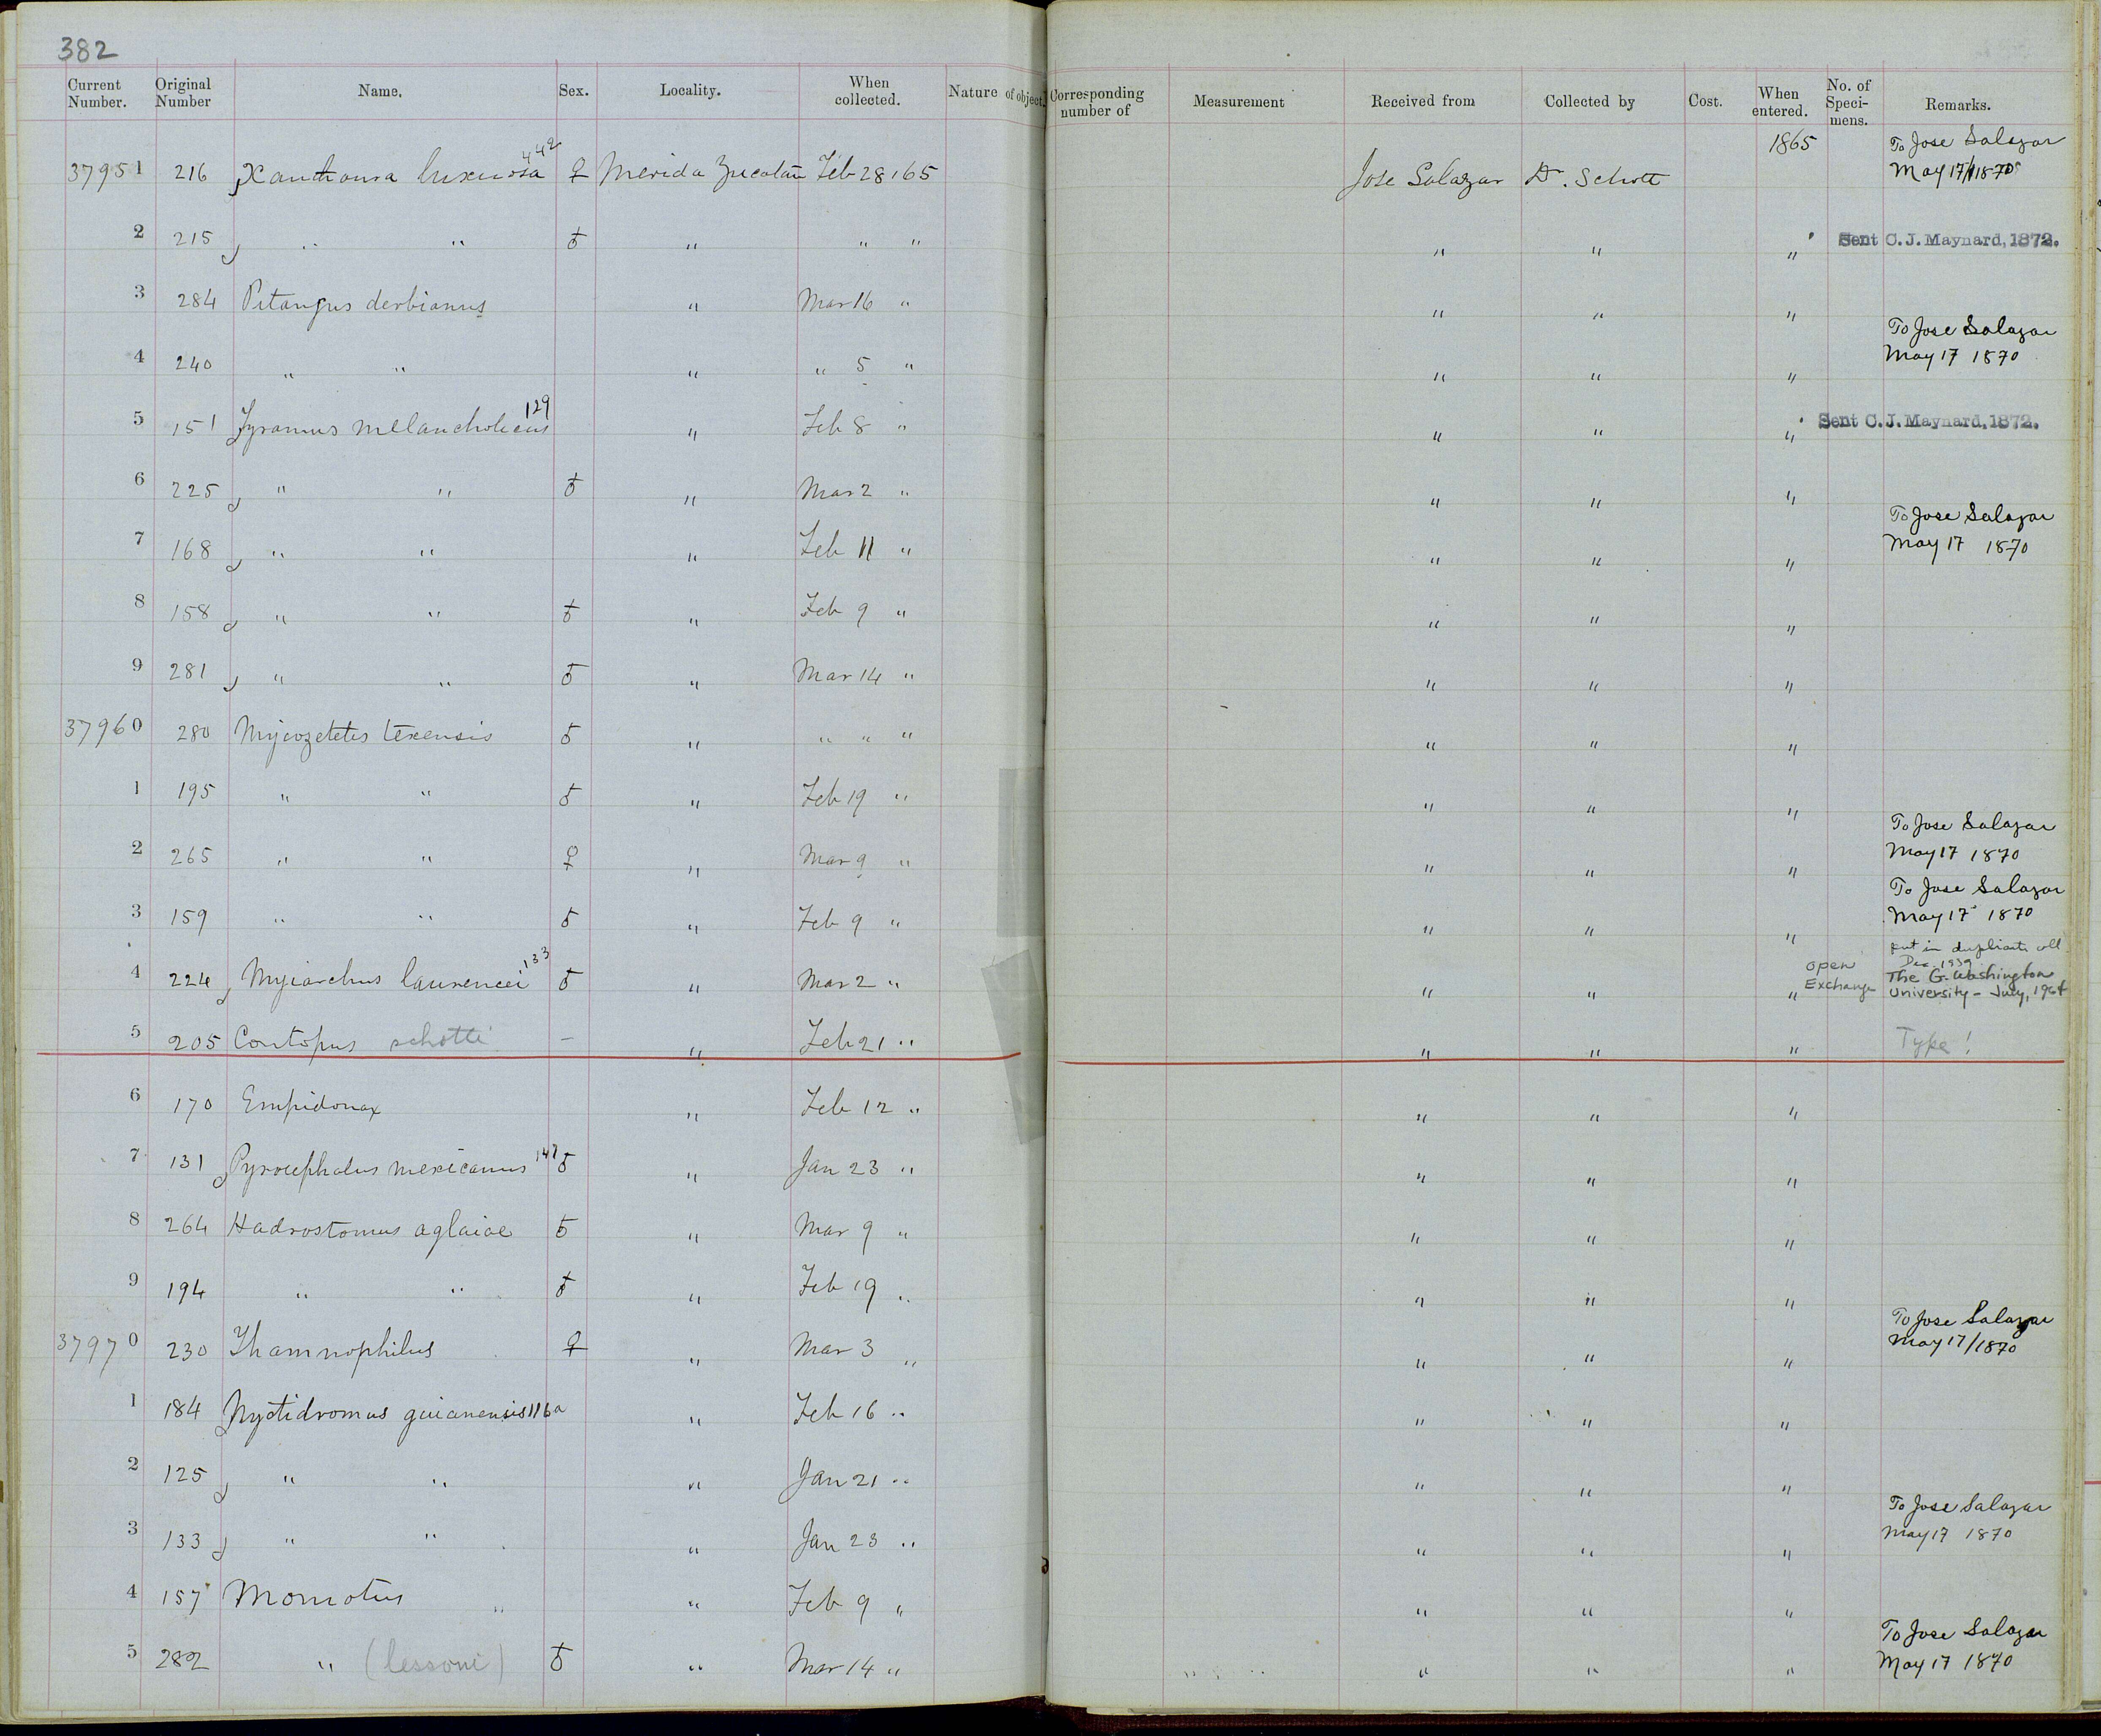 382
Current Number. Original Number Name. Sex. Locality. When collected. Nature of object. Corresponding number of Measurement Received from Collected by Cost. When entered. No. of Speci-mens. Remarks.
37951 216 Xanthoura luxuosa 442 ♀ Merida Yucatan Feb 28 '65 Jose Salazar Dr. Schott 1865 To Jose Salazar May 17/1870
2 215 " " ♂ " " " " " " Sent C. J. Maynard, 1872.
3 284 Pitangus derbianus " Mar 16 " " " "
4 240 " " " " 5 " " " " To Jose Salazar May 17 1870
5 151 Tyrannus melancholicus 129 " Feb 8 " " " " Sent C. J. Maynard, 1872.
6 225 " " ♂ " Mar 2 " " " "
7 168 " " " Feb 11 " " " " To Jose Salazar May 17 1870
8 158 " " ♂ " Feb 9 " " " "
9 281 " " ♂ " Mar 14 " " " "
37960 280 Myiozetetes texensis ♂ " " " " " " "
1 195 " " ♂ " Feb 19 " " " "
2 265 " " ♀ " Mar 9 " " " " To Jose Salazar May 17 1870
3 159 " " ♂ " Feb 9 " " " " To Jose Salazar May 17 1870
4 224 Myiarchus laurencei 133 ♂ " Mar 2 " " " " open Exchange put in duplicate coll Dec. 1939 The G. Washington University - July, 1964
5 205 Contopus schotti - " Feb 21 " " " " Type!
6 170 Empidonax " Feb 12 " " " "
7 131 Pyrocephalus mexicanus 147 ♂ " Jan 23 " " " "
8 264 Hadrostomus aglaiae ♂ " Mar 9 " " " "
9 194 " " ♂ " Feb 19 " " " "
37970 230 Thamnophilus ♀ " Mar 3 " " " " To Jose Salazar May 17/1870
1 184 Nyctidromus guianensis 116a " Feb 16 " " " "
2 125 " " " Jan 21 " " " "
3 133 " " " Jan 23 " " " " To Jose Salazar May 17 1870
4 157 Momotus " " Feb 9 " " " "
5 282 " (lessoni) ♂ " Mar 14 " " " " To Jose Salazar May 17 1870